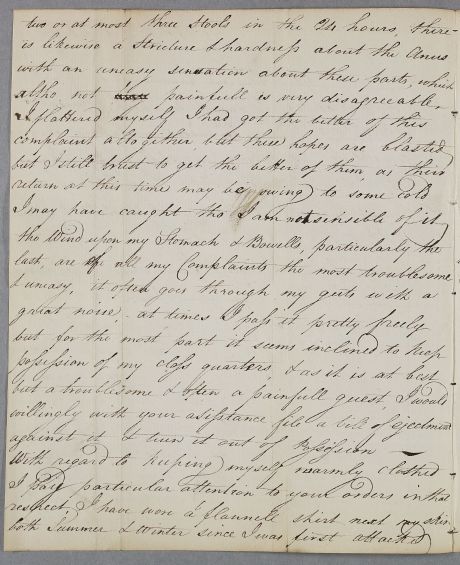 two or at most three Stools in the 24 hours, there
is likewise a Stricture & hardness about the Anus
with an uneasy sensation about these parts, which
altho not painfull is very disagreeable,
I flattered myself I had got the better of this
complaint altogither but these hopes are blasted
but I still trust to get the better of them, as their
return at this time may be owing to some Cold
I may have caught tho I am not sensible of it
the Wind upon my Stomach & Bowells, particularly the
last, are of all my Complaints the most troublesome
& uneasy, it often goes through my guts with a
great noise, at times I pass it pretty freely
but for the most part it seems inclined to keep
possession of my close quarters, & as it is at best
but a troublesome & often a painfull guest, I would
willingly with your assistance file a bill of ejectment
against it & turn it out of possession —
With regard to keeping myself warmly clothed
I pay particular attention to your orders in that
respect, I have worn a flannell shirt next my skin
both Summer & Winter since I was first attacked